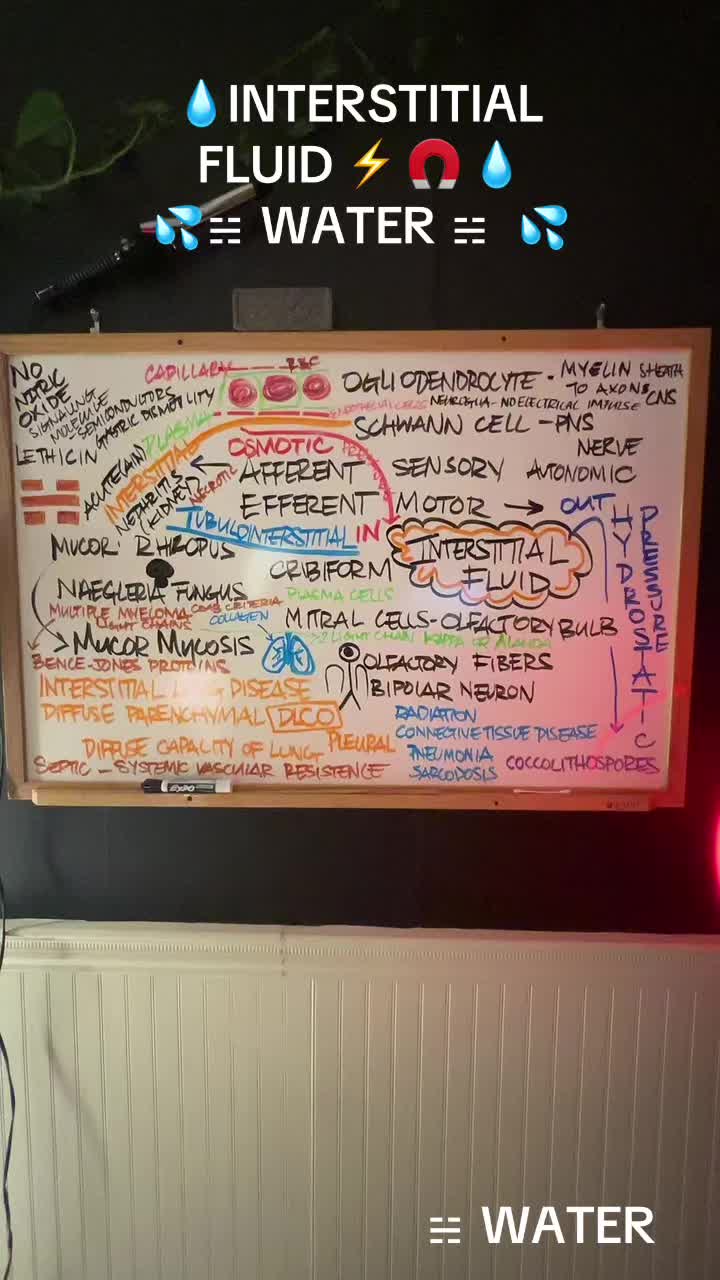 💧INTERSTITIAL
FLUID ⚡ 🧲 💧
💦☵ WATER ☵ 💦
NO
NITRIC
OXIDE
SIGNALING
MOLECULE
SEMICONDUCTORS
GASTRIC DISMOTILITY
LETHICIN
CAPILLARY
RBC
PLASMA
ENDOTHELIAL CELLS
OGLIODENDROCYTE - MYELIN SHEATH
TO AXONS CNS
NEUROGLIA - NO ELECTRICAL IMPULSE
SCHWANN CELL - PNS
NERVE
OSMOTIC
PRESSURE
ACUTE (AIN)
INTERSTITIAL
NEPHRITIS
(KIDNEY)
NECROTIC
← AFFERENT SENSORY AUTONOMIC
EFFERENT MOTOR → OUT
TUBULOINTERSTITIAL IN
HYDROSTATIC
PRESSURE
INTERSTITIAL
FLUID
MUCOR RHIZOPUS
CRIBIFORM
NAEGLERIA FUNGUS
PLASMA CELLS
MULTIPLE MYELOMA
LIGHT CHAINS
COLLAGEN
MITRAL CELLS - OLFACTORY BULB
> MUCOR MYCOSIS
BENCE-JONES PROTEINS
OLFACTORY FIBERS
INTERSTITIAL LUNG DISEASE
BIPOLAR NEURON
DIFFUSE PARENCHYMAL DLCO
RADIATION
CONNECTIVE TISSUE DISEASE
DIFFUSE CAPACITY OF LUNG PLEURAL
PNEUMONIA
SARCODOSIS
SEPTIC - SYSTEMIC VASCULAR RESISTENCE
COCCOLITHOSPORES
EXPO
☵ WATER